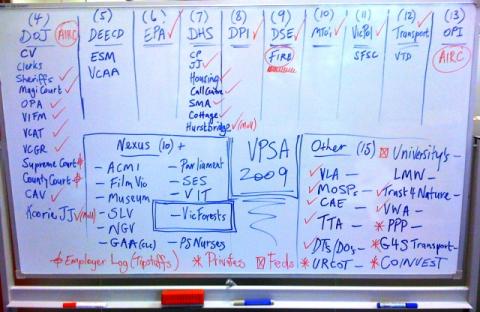 (4) (5) (6) (7) (8) (9) (10) (11) (12) (13)
DOJ AIRC DEECD EPA DHS DPI DSE MTOs VicPol Transport OPI
CV
Clerks
Sheriffs
Magi Court
OPA
VIFM
VCAT
VCGR
Supreme Court
County Court
CAV
Koorie JJ (null)
ESM
VCAA
CP
JJ
Housing
Call Centre
SMA
Cottage
Hurstbridge (null)
FIRE
SFSC
VTD
AIRC
Nexus (10)+
- ACMI
- Film Vic
- Museum
- SLV
- NGV
- GAA (CLC)
- Parliament
- SES
- VIT
- VicForests
- PS Nurses
VPSA
2009
Other (15)
VLA -
MOSPs -
CAE -
TTA -
DTS/DOs -
* URCOT -
University's -
LMW -
Trust 4 Nature -
VWA -
* PPP -
* G4S Transport -
* COINVEST -
Employer Log (Tipstaffs) * Privates Feds